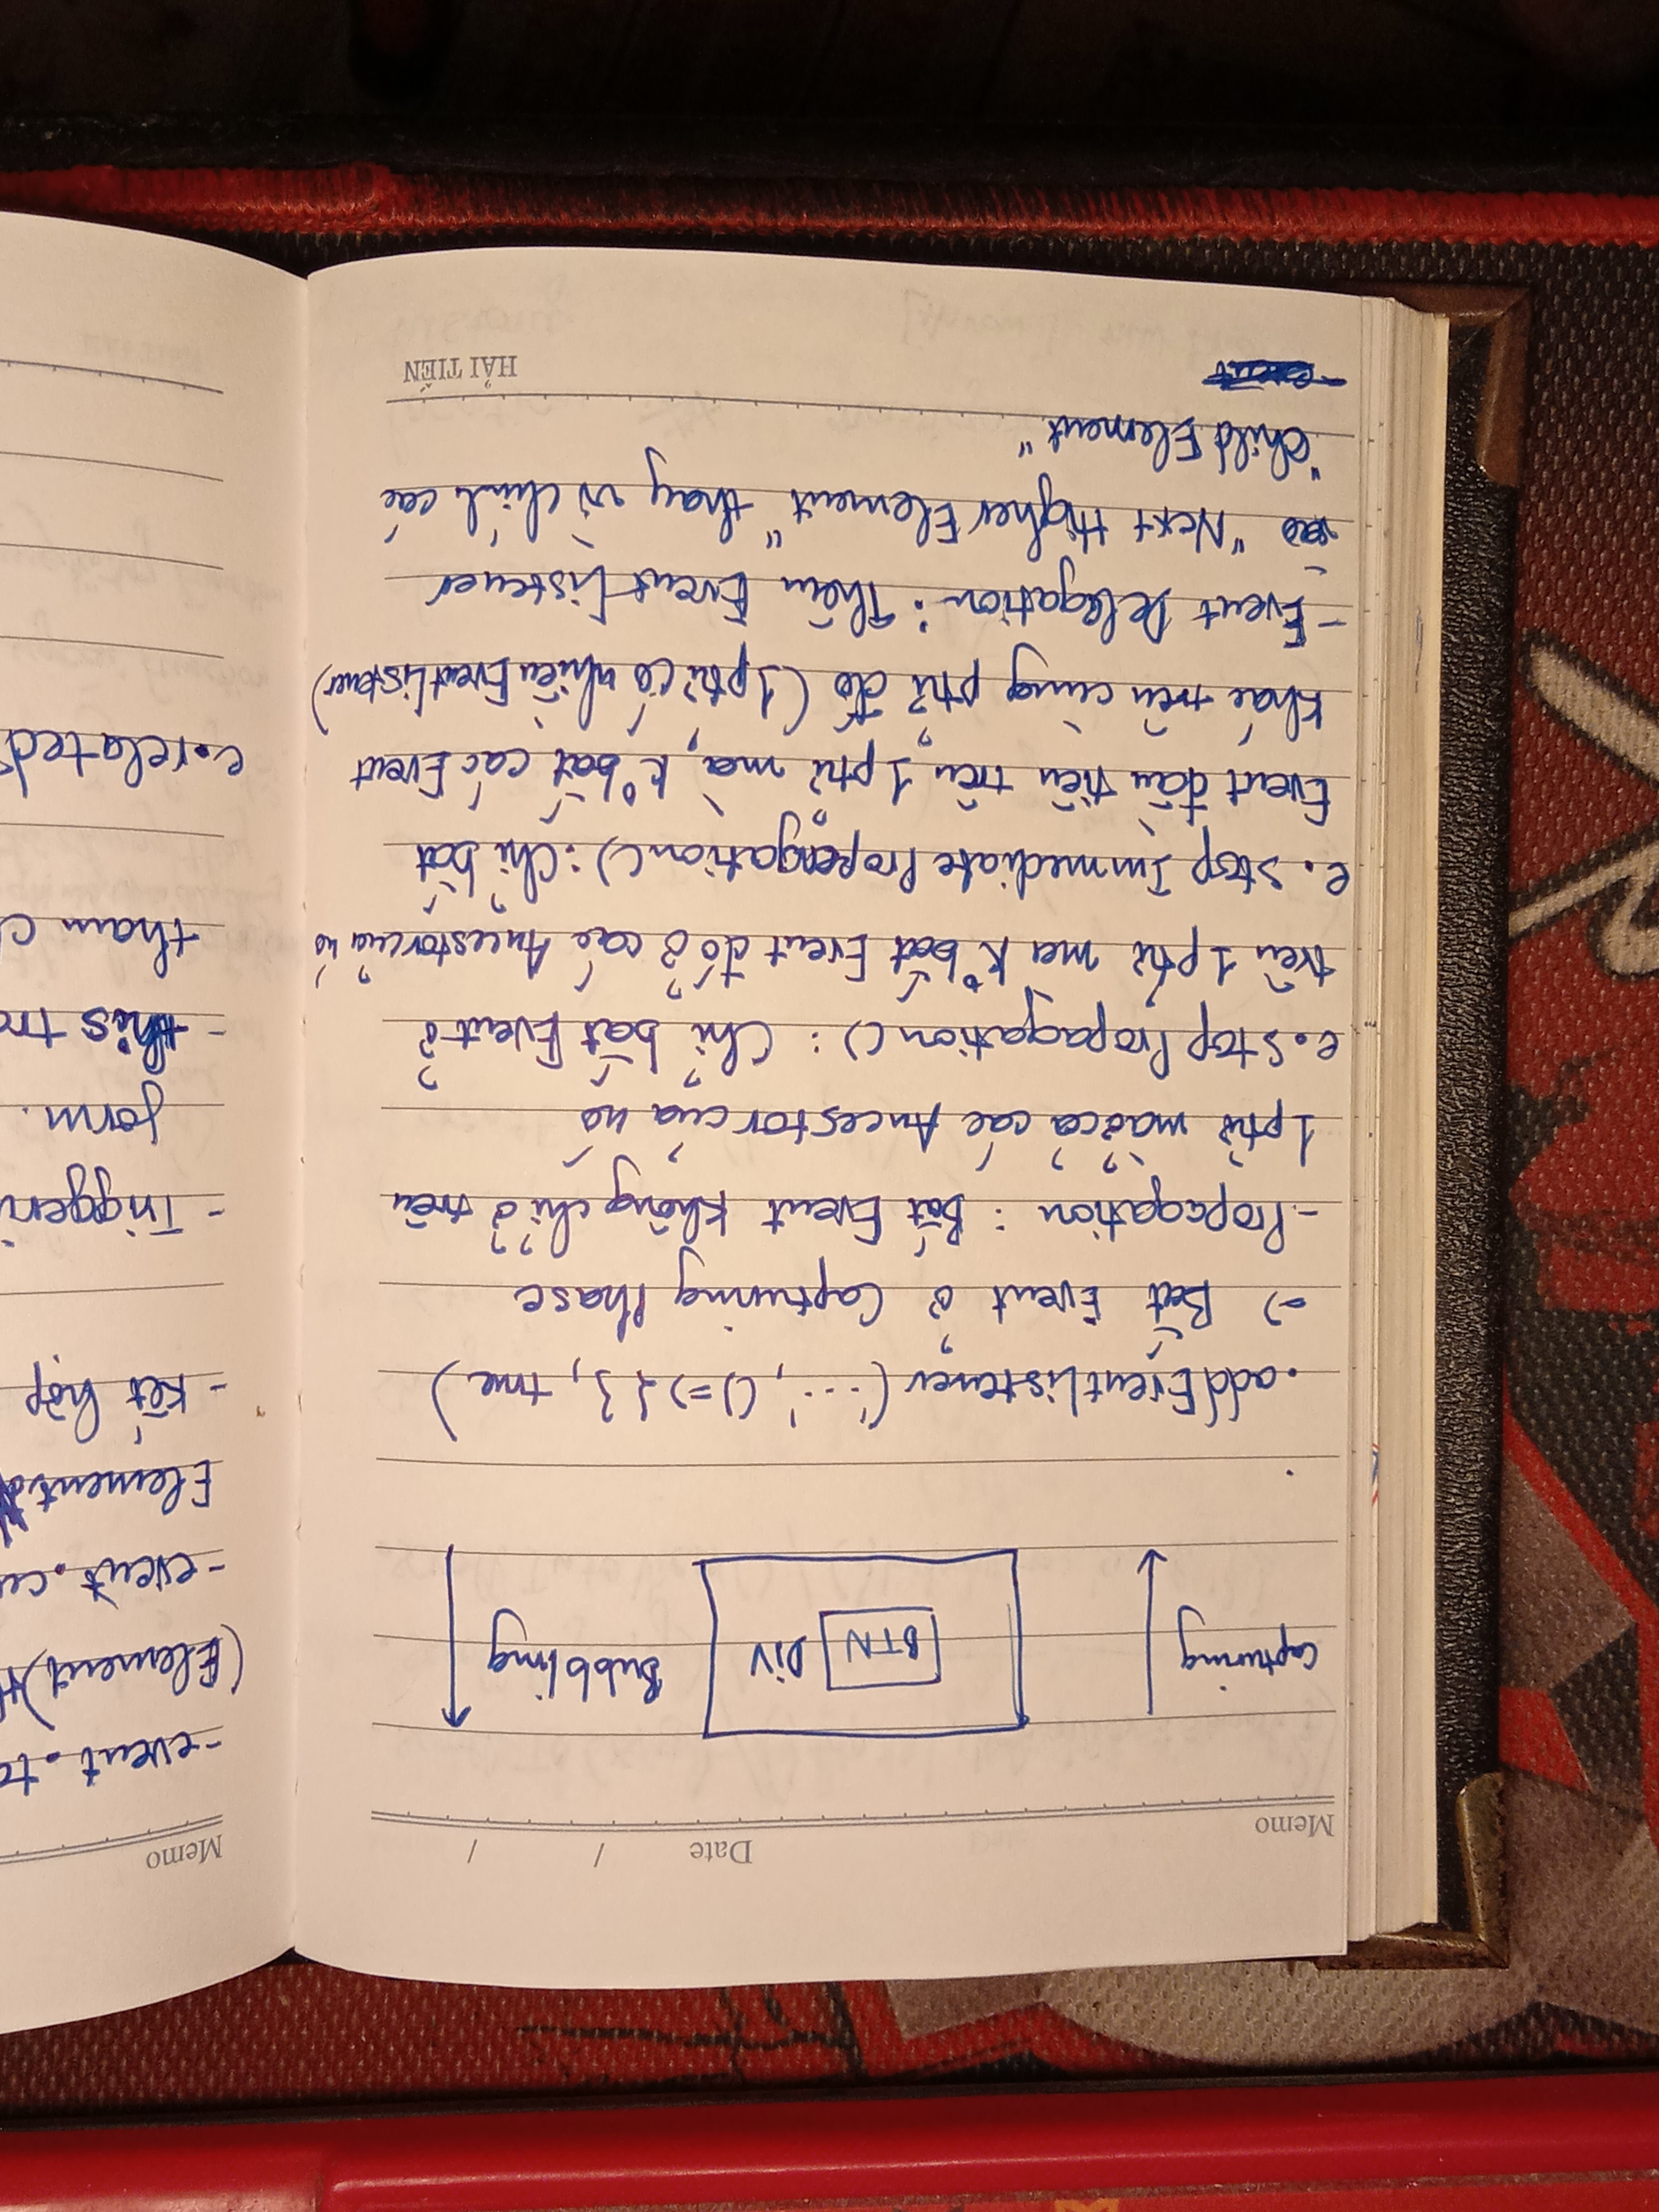 Memo Date / /
Capturing BTN DIV Bubbling
.addEventListener ('...', () => { }, true)
=> Bắt Event ở Capturing Phase
- Propagation : Bắt Event không chỉ ở trên
1 ptử mà ở cả các Ancestor của nó
e.stopPropagation() : Chỉ bắt Event ở
trên 1 ptử mà k° bắt Event đó ở các Ancestor của nó
e. stop Immediate Propengation() : Chỉ bắt
Event đầu tiên trên 1 ptử mà k° bắt các Event
khác trên cùng ptử đó (1 ptử có nhiều EventListener)
- Event Delegation : Thêm EventListener
vào "Next Higher Element" thay vì chính các
"Child Element"
HẢI TIẾN
Memo
- event.
(Element)
- event.
Element
- Kết hợp
-
form.
- this
tham